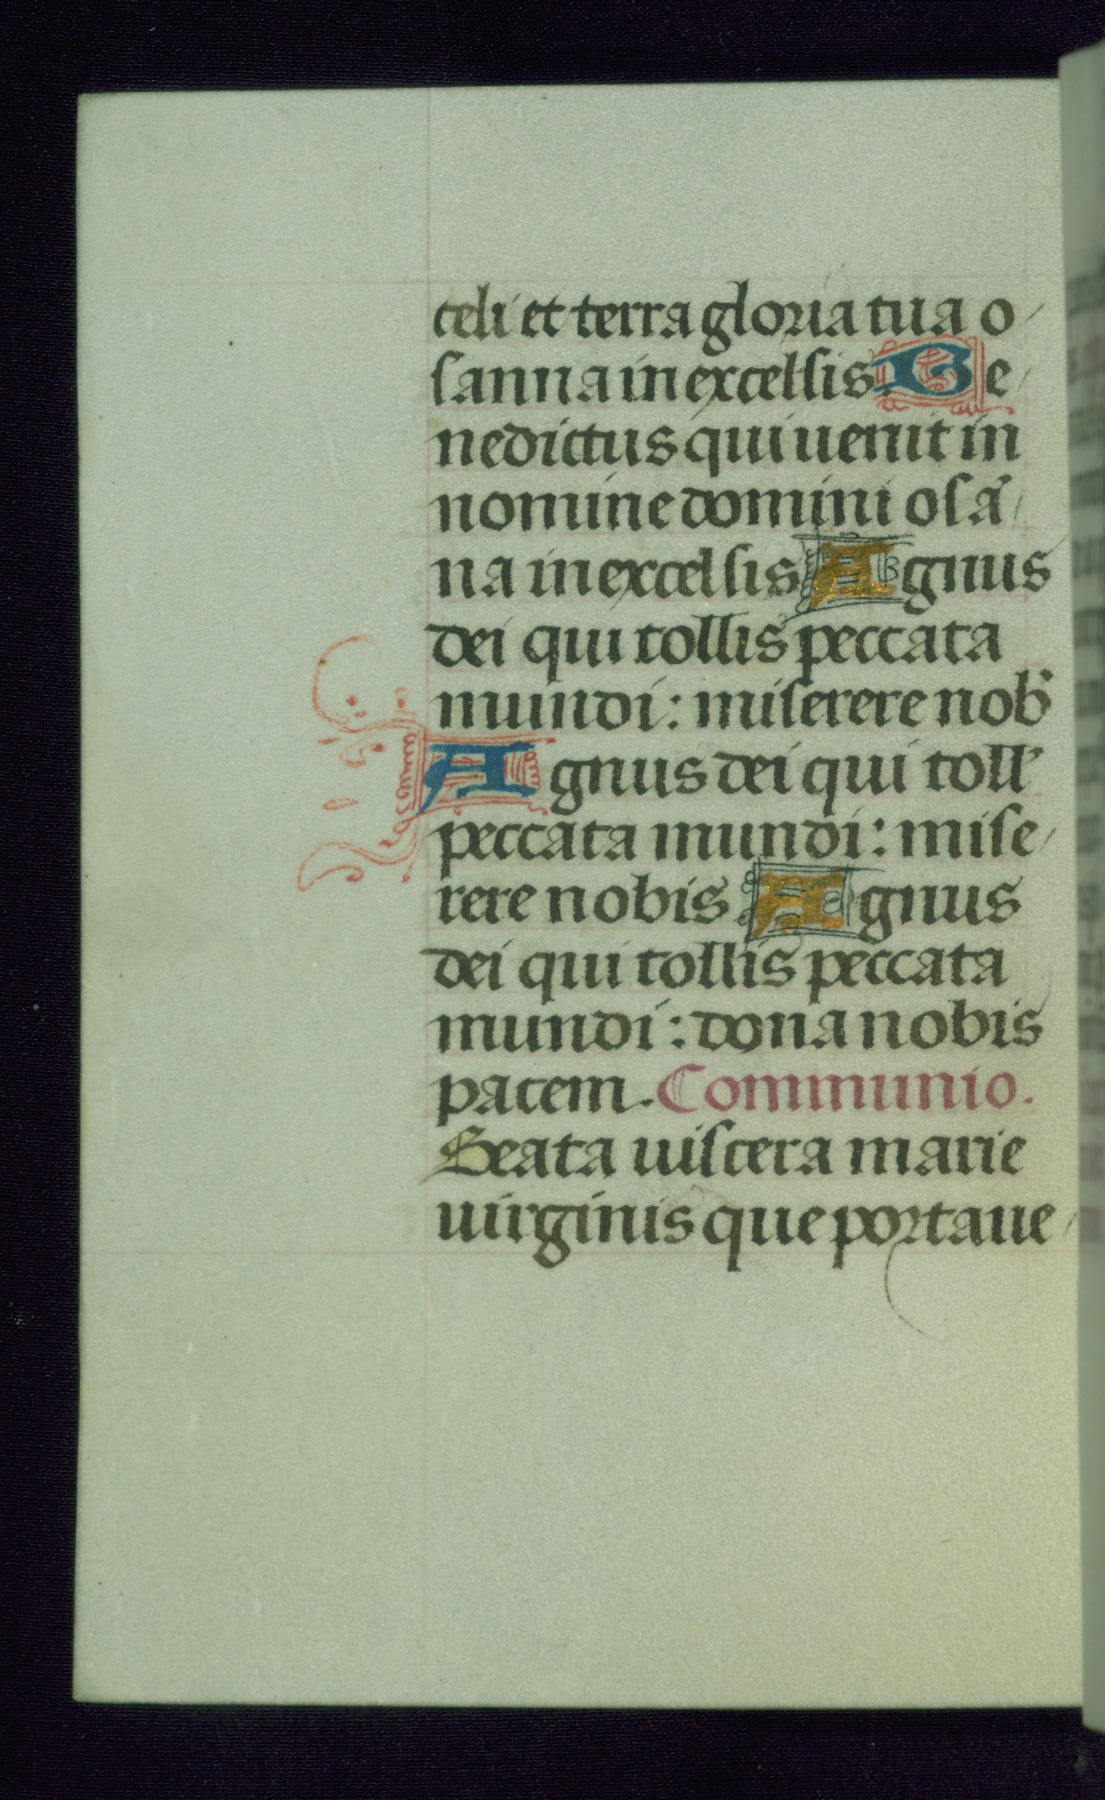 celi et terra gloria tua o
sanna in excelsis Be
nedictus qui uenit in
nomine domini osã
na in excelsis Agnus
dei qui tollis peccata
mundi: miserere nob'
Agnus dei qui toll'
peccata mundi: mise
rere nobis Agnus
dei qui tollis peccata
mundi: dona nobis
pacem. Communio.
Beata uiscera marie
uirginis que portaue